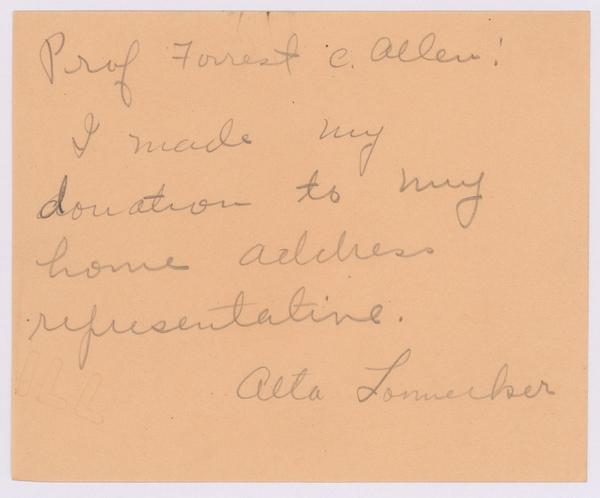 Prof Forrest C. Allen:
I made my
donation to my
home address
representative.
Alta Lonnecker